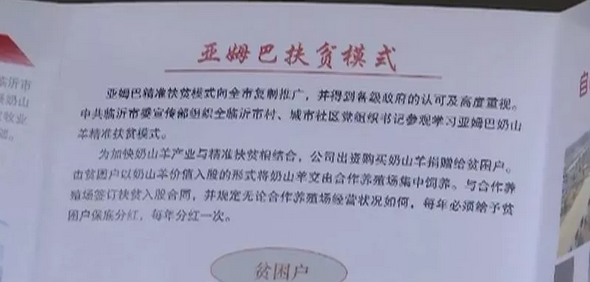 亚姆巴扶贫模式
亚姆巴精准扶贫模式向全市复制推广，并得到各级政府的认可及高度重视。
中共临沂市委宣传部组织全临沂市村、城市社区党组织书记参观学习亚姆巴奶山
羊精准扶贫模式。
为加快奶山羊产业与精准扶贫相结合，公司出资购买奶山羊捐赠给贫困户。
由贫困户以奶山羊价值入股的形式将奶山羊交由合作养殖场集中饲养。与合作养
殖场签订扶贫入股合同，并规定无论合作养殖场经营状况如何，每年必须给予贫
困户保底分红，每年分红一次。
贫困户
临沂市
奶山
牧业
自